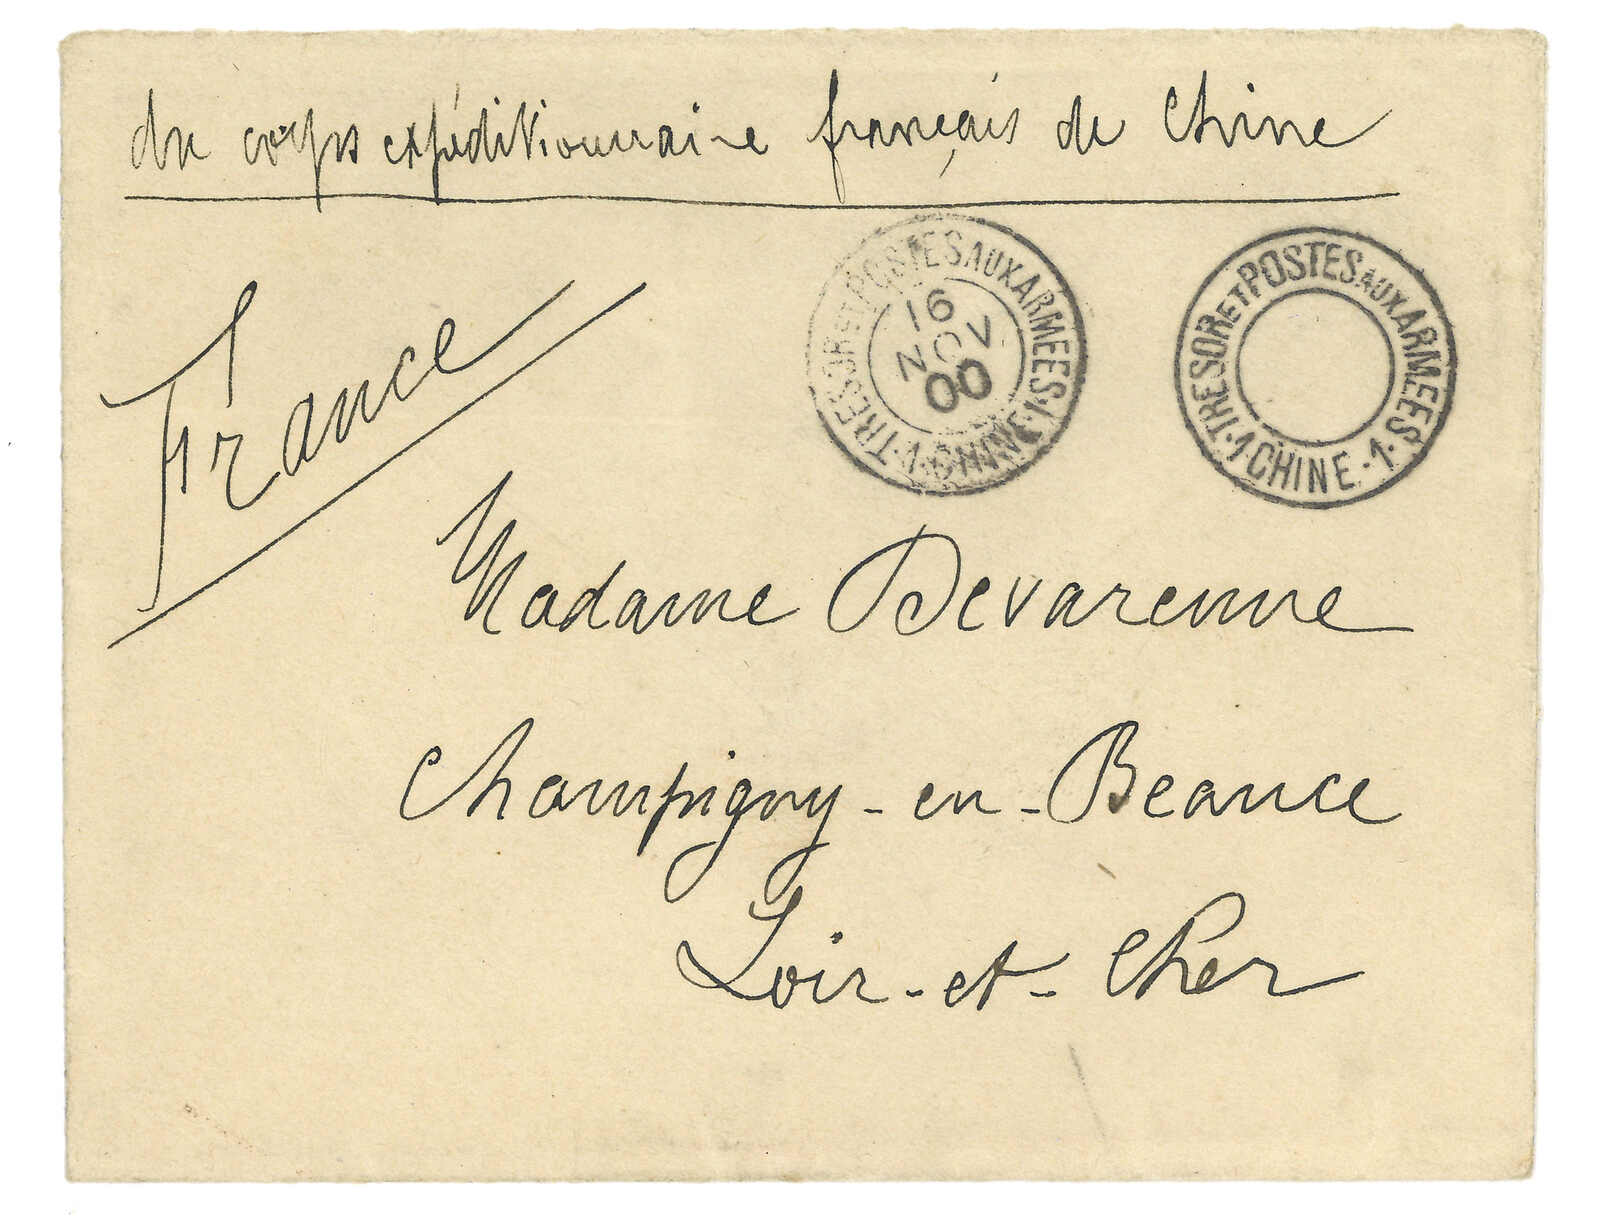 du corps expéditionnaire français de Chine
France
TRESOR ET POSTES AUX ARMEES
16
NOV
00
·1·CHINE·1·
TRESOR ET POSTES AUX ARMEES
·1·CHINE·1·
Madame Devarenne
Champigny-en-Beauce
Loir-et-Cher